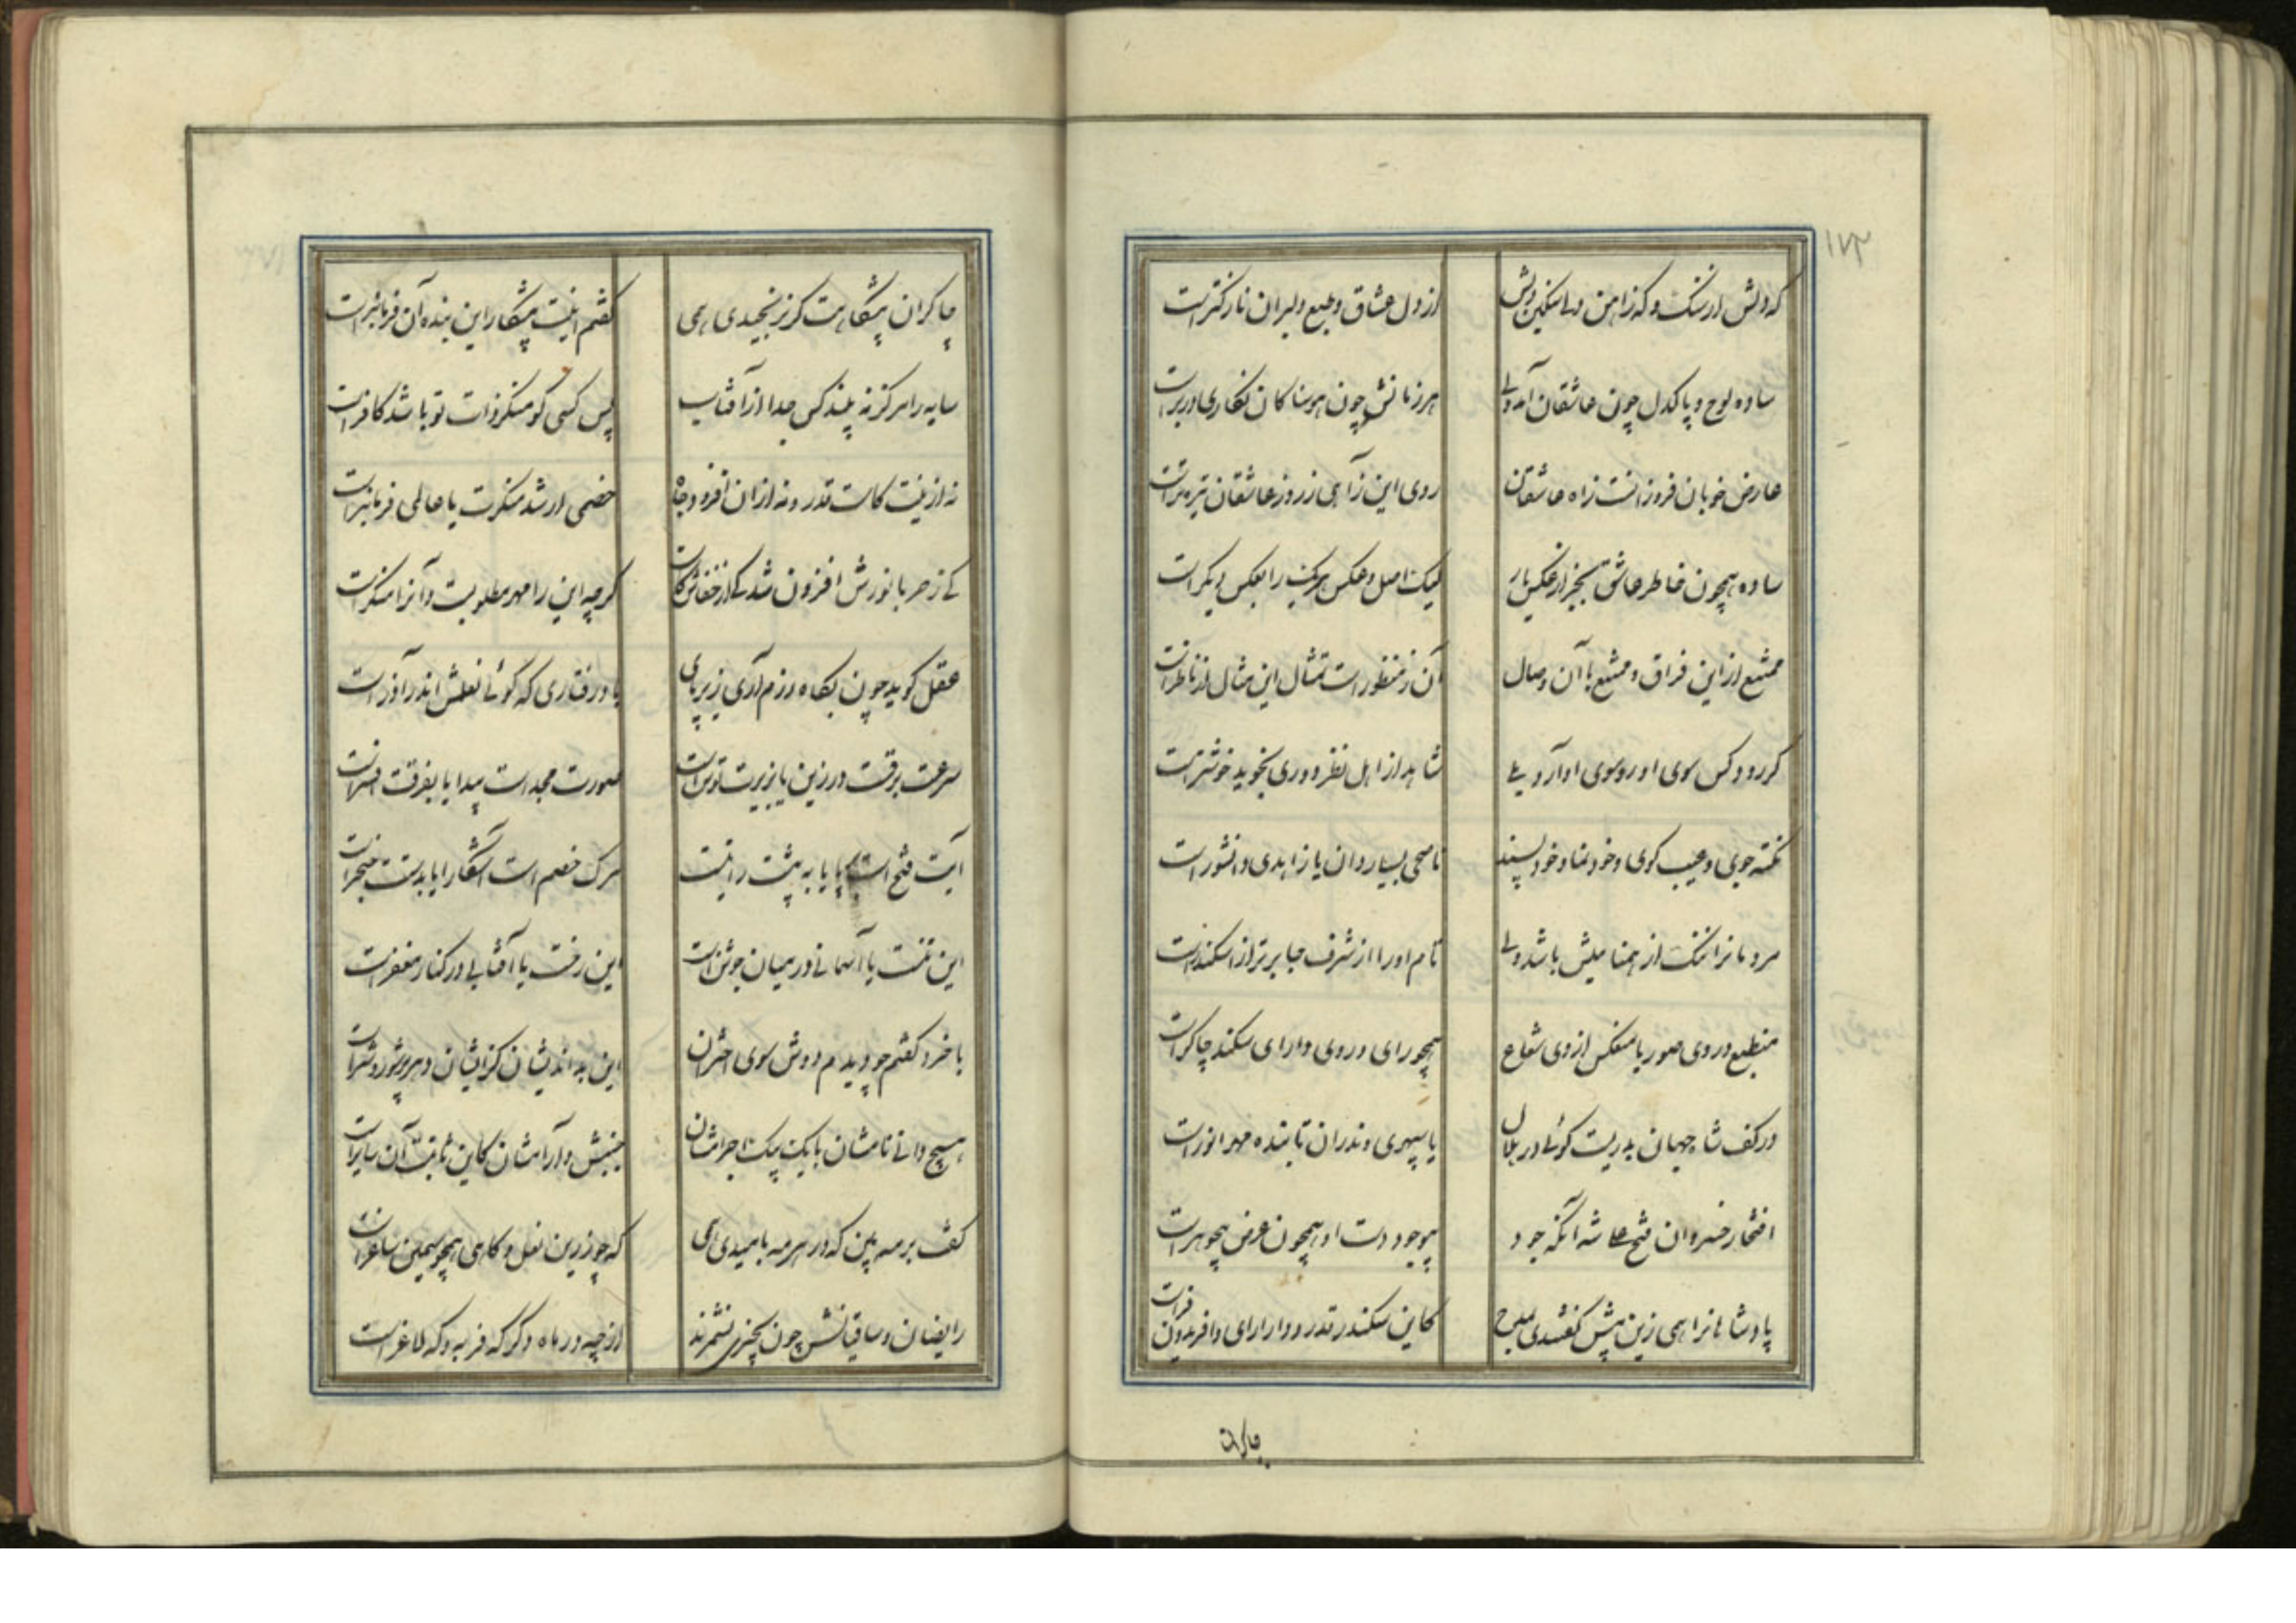 ۱۷۲
که دلش از سنگ و که ز آهن ولی سنگین دلش
از دل عشاق و طبع دلبران نازکتر است
ساده لوح و پاکدل چون عاشقان آمد ولی
هر زمانش چون هوسناکان نگاری در بر است
عارض خوبان فروزانست ز آه عاشقان
روی این ز آهی ز روز عاشقان تیره‌تر است
ساده همچون خاطر عاشق بجز از عکس یار
لیک اصل و عکس هریک را بعکس دیگر است
ممتنع از این فراق و ممتنع با آن وصال
آن ز منظور است تمثال این مثال از ناظر است
گر رود کس سوی او رو سوی او آرد بلی
شاهد از اهل نظر دوری نجوید خوشتر است
نکته جوی و عیب گوی و خودنما و خود پسند
ناصحی بسیاردان یا زاهدی دانشور است
مردمانرا ننگ از همتا میلش باشد ولی
نام او را از شرف جا برتر از اسکندر است
منطبع در وی صور یا منعکس از وی شعاع
همچو رای و روی دارای سکندر چاکر است
در کف شاه جهان بدریست گوئی در هلال
یا سپهری وندران تابنده مهر انور است
افتخار خسروان فتحعلی شه آنکه جود
بوجود دست او همچون عرض بیجوهر است
پادشاهانرا همی زین پیش گفتندی بمدح
کاین سکندر قدر و دارا رای و افریدون فر است
چاکران
چاکران پیشگاهت گر نرنجیدی همی
گفتم اینت پیشکار این بنده آن فرمانبر است
سایه را هرگز نه بیند کس جدا از آفتاب
پس کسی کو منکر ذات تو باشد کافر است
نه ازینت کاست قدر و نه از آن افزود جاه
خصمی ار شد منکرت یا عالمی فرمانبر است
کی ز حربا نورش افزون شد کی از خفاش کاست
گرچه این را مهر مطلوبست و آنرا منکر است
عقل گوید چون بگاه رزم آری زیر پای
بادرفتاری که گوئی نعلش اندر آذر است
سرعت برقست در زین یا بزیرت توسن است
صورت مجد است پیدا یا بفرقت افسر است
آیت فتح است پایا به پشت رایت است
مرگ خصم است آشکارا یا بدستت خنجر است
این تنت یا آسمانی در میان جوشن است
این رخت یا آفتابی در کنار مغفر است
با خرد گفتم چو دیدم دوش سوی اختران
این بداندیشان کزایشان دهر پر شور و شر است
هیچ دانی نامشان با یک بیک اجراشان
جنبش و آرامشان کاین ثابت آن سایر است
گفت بر مه بین که در هر مه باهمیدی همی
که چو زرین نعل و گاهی همچو سیمین ساغر است
رایضان و ساقیانش چون بچیزی نشمرند
از چه در ماه دگر که فربه و که لاغر است